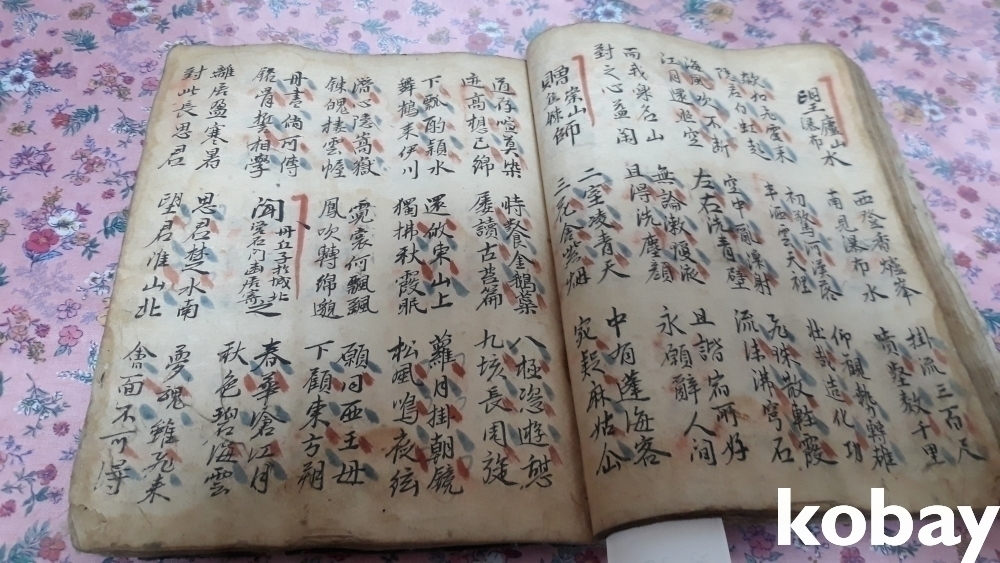 望廬山瀑布水
西登香爐峯
南見瀑布水
掛流三百尺
噴壑數千里
欻如飛電來
隱若白虹起
初驚河漢落
半洒雲天裡
仰觀勢轉雄
壯哉造化功
海風吹不断
江月還照空
空中亂潨射
左右洗青壁
飛珠散輕霞
流沫沸穹石
而我樂名山
對之心益閑
無論漱瓊液
且得洗塵顏
且諧宿所好
永願辭人間
贈嵩山焦鍊師
二室凌青天
三花含紫烟
中有蓬海客
宛疑麻姑仙
道存喧莫染
迹高想已綿
時餐金鵝蘂
屢讀古苔篇
八極恣遊憩
九垓長周旋
下瓢酌潁水
舞鶴来伊川
還歸東山上
獨拂秋霞眠
蘿月掛朝鏡
松風鳴夜絃
潛心陵嵩嶽
鍊魄棲雲幄
霓裳何飄飄
鳳吹轉綿邈
願同西王母
下顧東方朔
丹書倘可傳
銘骨誓相學
聞丹丘子於城北營石門幽居寄之
春華滄江月
秋色碧海雲
離居盈寒暑
對此長思君
思君楚水南
望君淮山北
夢魂雖飛来
會面不可得
kobay